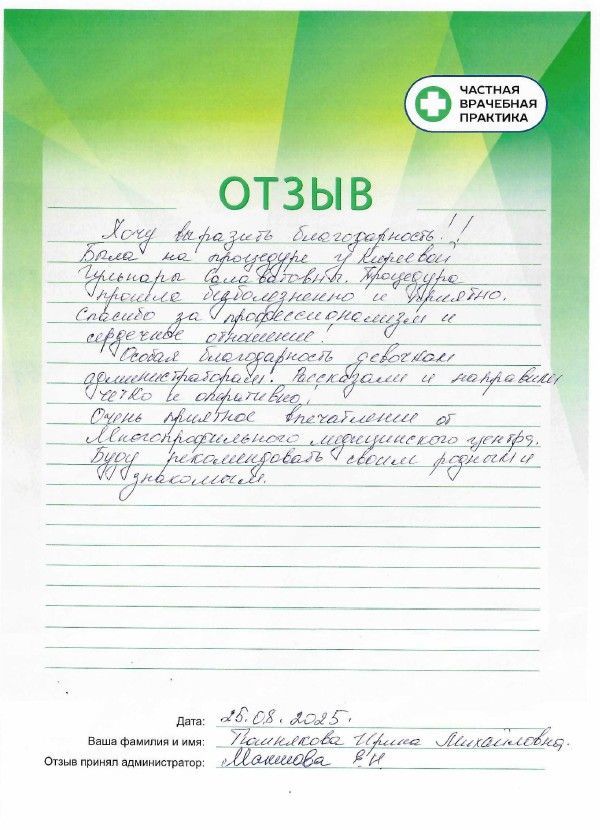 ЧАСТНАЯ
ВРАЧЕБНАЯ
ПРАКТИКА
ОТЗЫВ
Хочу выразить благодарность!!!
Была на процедуре у Киреевой
Гульнары Салаватовны. Процедура
прошла безболезненно и приятно.
Спасибо за профессионализм и
сердечное отношение!
Особая благодарность девочкам
администраторам. Рассказали и направили
четко и оперативно.
Очень приятное впечатление от
Многопрофильного медицинского центра.
Буду рекомендовать своим родным и
знакомым.
Дата: 25.08.2025.
Ваша фамилия и имя: Ирина Михайловна.
Отзыв принял администратор: Е.Н